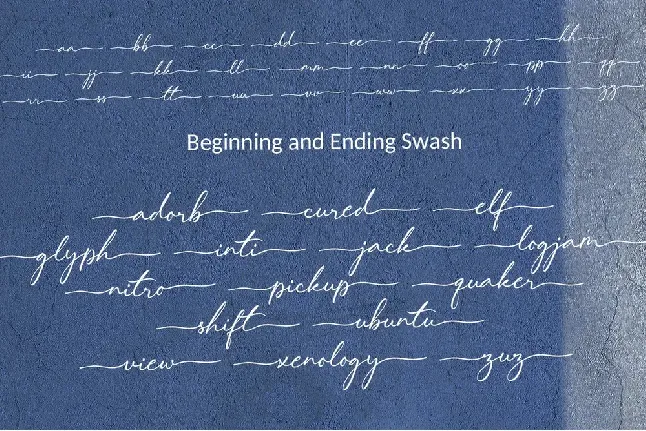 aa bb cc dd ee ff gg hh
ii jj kk ll mm nn oo pp qq
rr ss tt uu vv ww xx yy zz
Beginning and Ending Swash
adorb cured elf
glyph inti jack logjam
nitro pickup quaker
shift ubuntu
view xenology zuz